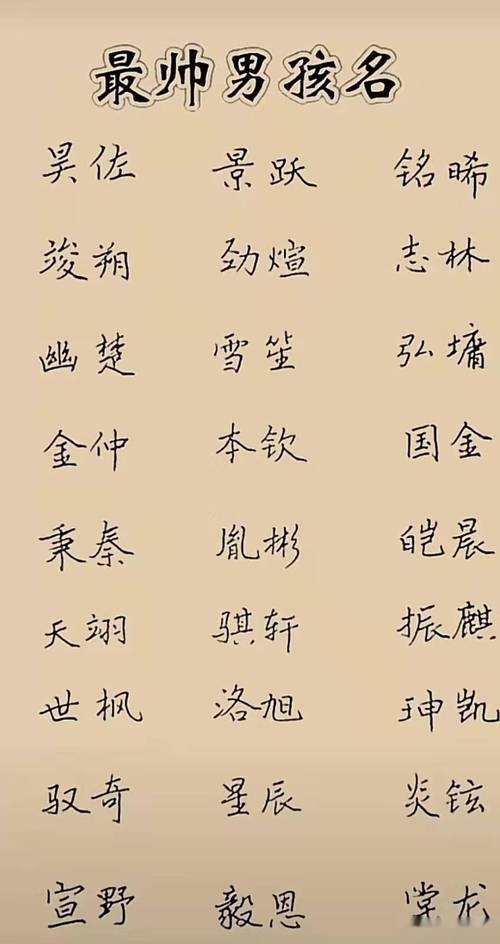 最帅男孩名
昊佐 景跃 铭晞
竣朔 劲煊 志林
幽楚 雪笙 弘墉
金仲 本钦 国金
秉秦 胤彬 皑晨
天翊 骐轩 振麒
世枫 洛旭 珅凯
驭奇 星辰 炎铉
宣野 毅恩 堂龙